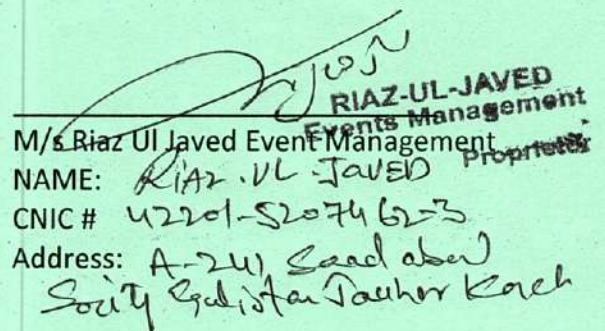 RIAZ-UL-JAVED
Events Management
Proprietor
M/s Riaz Ul Javed Event Management
NAME: RIAZ.UL-JAVED
CNIC # 42201-5207462-3
Address: A-241 Saad abad
Socity Gulistan Jauhar Karch